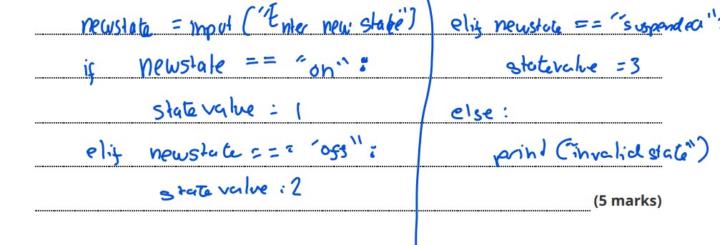 newstate = input ("Enter new state")
if newstate == "on":
statevalue = 1
elif newstate == "off":
statevalue = 2
elif newstate == "suspended":
statevalue = 3
else:
print ("invalid state")
(5 marks)